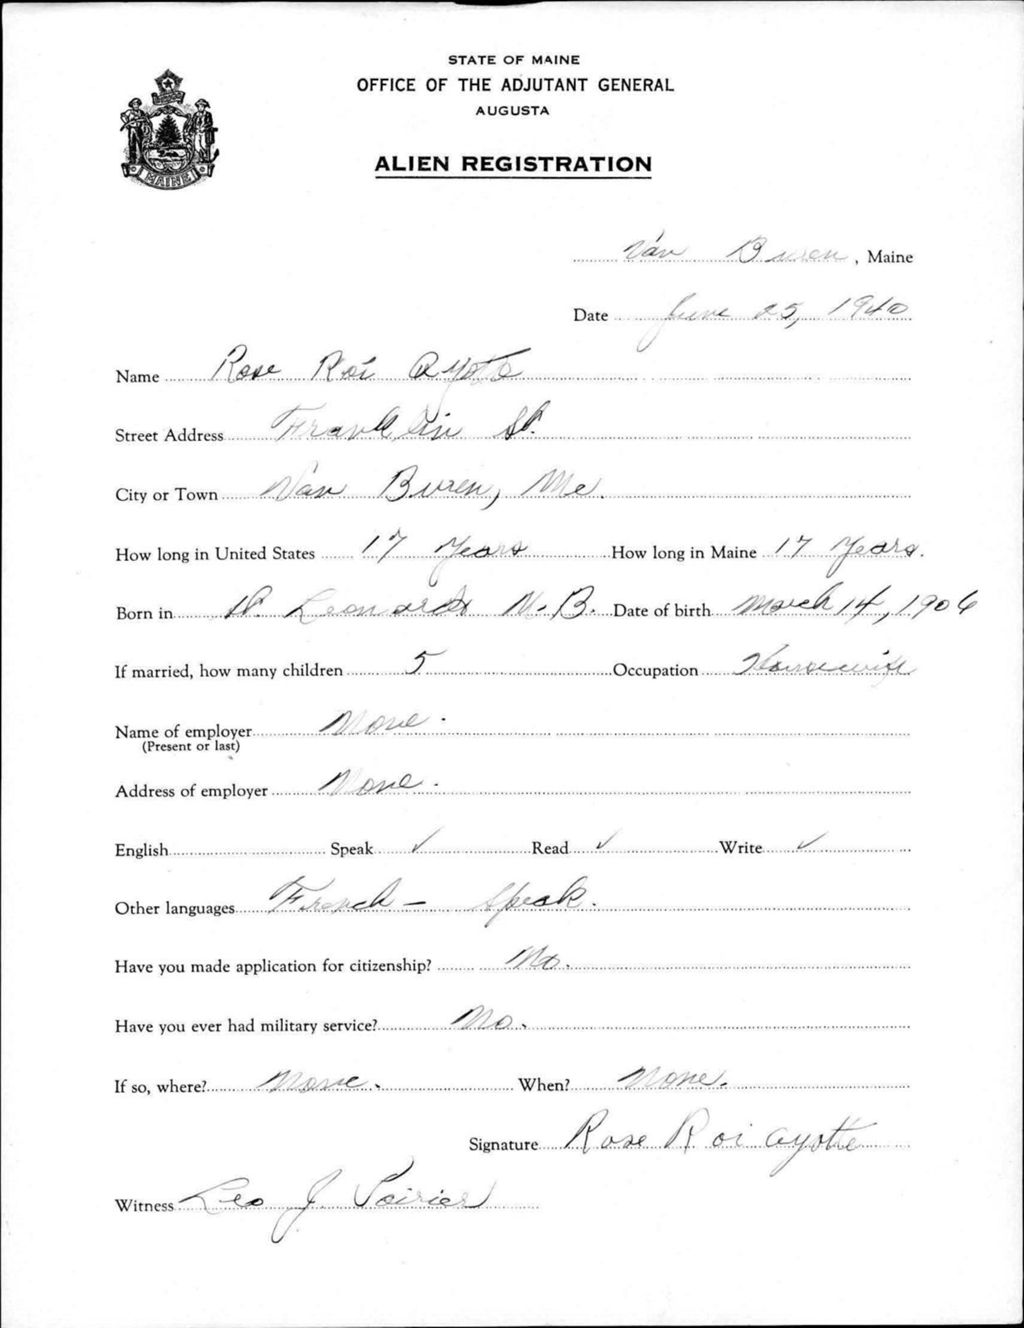 STATE OF MAINE
OFFICE OF THE ADJUTANT GENERAL
AUGUSTA
ALIEN REGISTRATION
MAINE
Van Buren, Maine
Date June 25, 1940
Name Rose Roi Ayotte
Street Address Franklin St.
City or Town Van Buren, Me.
How long in United States 17 Years How long in Maine 17 Years.
Born in St. Leonards N.B. Date of birth March 14, 1906
If married, how many children 5 Occupation Housewife
Name of employer None.
(Present or last)
Address of employer None.
English Speak ✓ Read ✓ Write ✓
Other languages French - Speak.
Have you made application for citizenship? No.
Have you ever had military service? No.
If so, where? None. When? None.
Signature Rose Roi Ayotte
Witness Leo J. Poirier